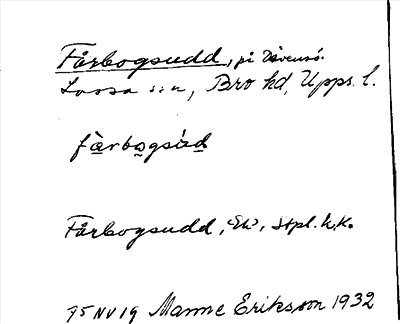 Fårbogsudd, på Dävensö.
Lossa sn, Bro hd, Upps. l.
Fårbogsudd, Ek., Stpl. h.k.
75 NV 19 Manne Eriksson 1932